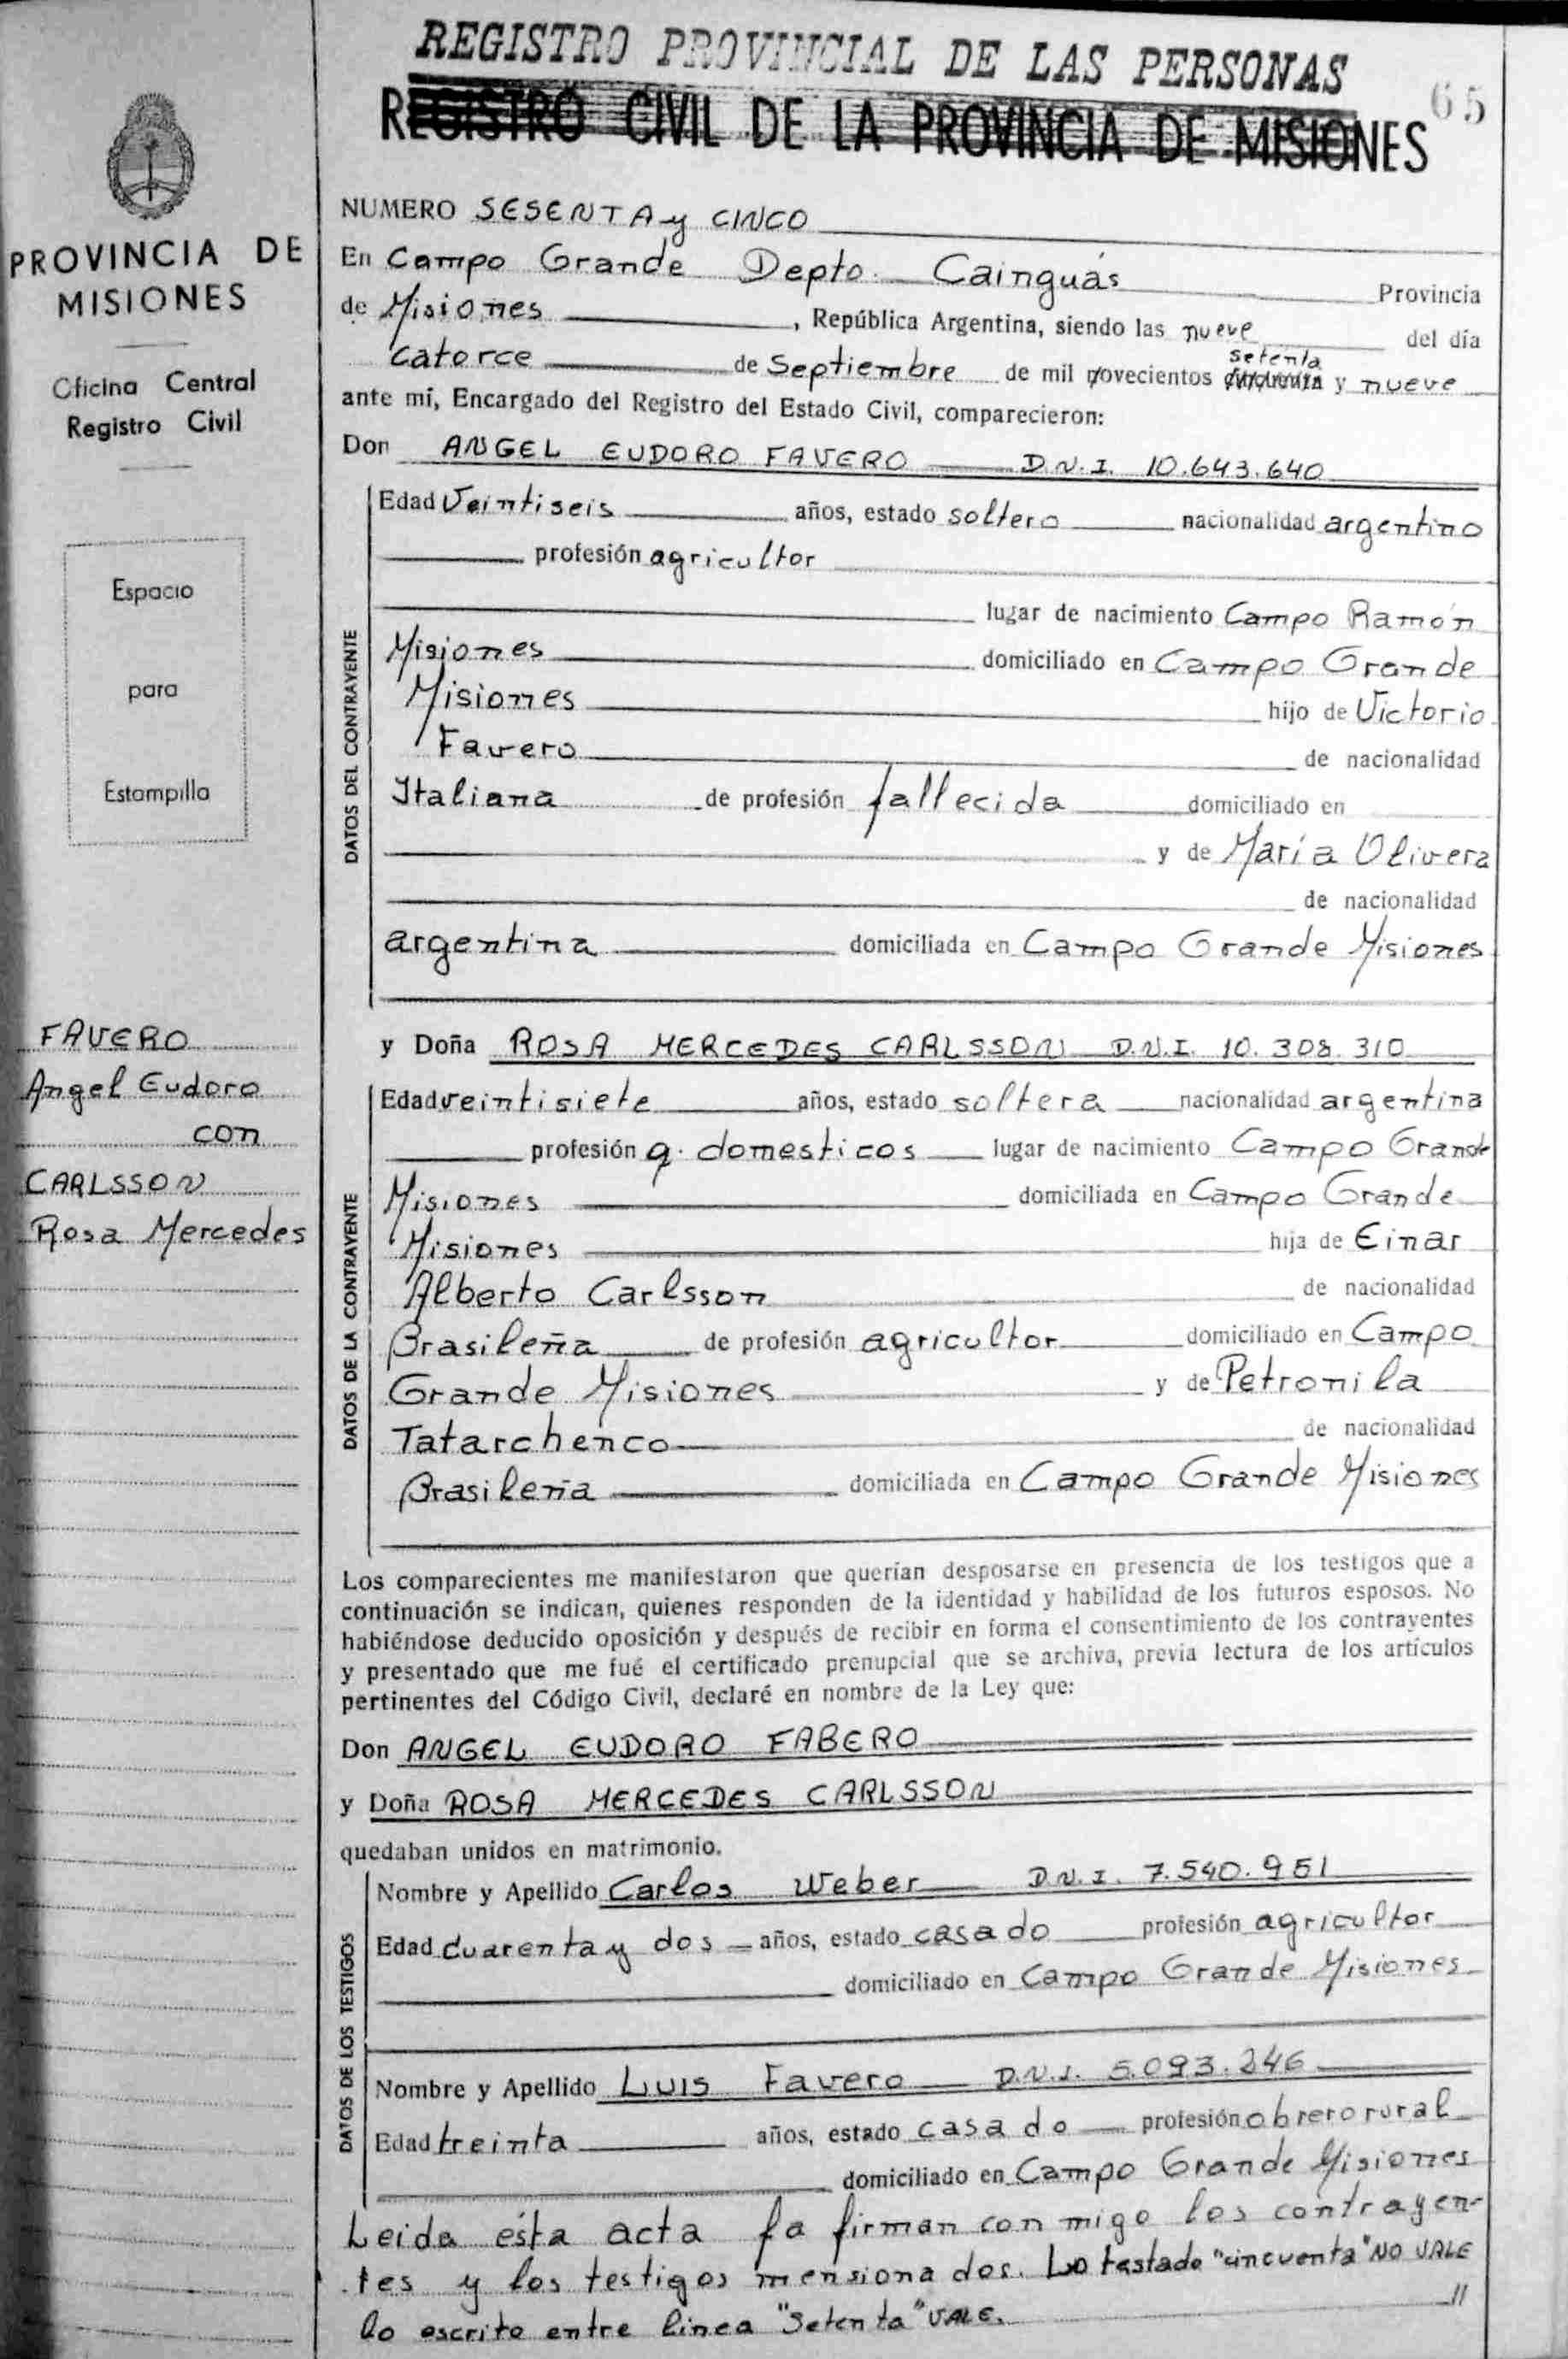 REGISTRO PROVINCIAL DE LAS PERSONAS
65
REGISTRO CIVIL DE LA PROVINCIA DE MISIONES
PROVINCIA DE
MISIONES
Oficina Central
Registro Civil
Espacio
para
Estampilla
FAVERO
Angel Eudoro
con
CARLSSON
Rosa Mercedes
NUMERO SESENTA y CINCO
En Campo Grande Depto. Cainguás Provincia
de Misiones, República Argentina, siendo las nueve del día
setenta
catorce de Septiembre de mil novecientos cincuenta y nueve
ante mí, Encargado del Registro del Estado Civil, comparecieron:
Don ANGEL EUDORO FAVERO D.N.I. 10.643.640
DATOS DEL CONTRAYENTE
Edad Veintiseis años, estado soltero nacionalidad argentino
profesión agricultor
lugar de nacimiento Campo Ramón
Misiones domiciliado en Campo Grande
Misiones hijo de Victorio
Favero de nacionalidad
Italiana de profesión fallecida domiciliado en
y de María Olivera
de nacionalidad
argentina domiciliada en Campo Grande Misiones
y Doña ROSA MERCEDES CARLSSON D.N.I. 10.308.310
DATOS DE LA CONTRAYENTE
Edad veintisiete años, estado soltera nacionalidad argentina
profesión q. domesticos lugar de nacimiento Campo Grande
Misiones domiciliada en Campo Grande
Misiones hija de Einar
Alberto Carlsson de nacionalidad
Brasileña de profesión agricultor domiciliado en Campo
Grande Misiones y de Petronila
Tatarchenco de nacionalidad
Brasileña domiciliada en Campo Grande Misiones
Los comparecientes me manifestaron que querían desposarse en presencia de los testigos que a
continuación se indican, quienes responden de la identidad y habilidad de los futuros esposos. No
habiéndose deducido oposición y después de recibir en forma el consentimiento de los contrayentes
y presentado que me fué el certificado prenupcial que se archiva, previa lectura de los artículos
pertinentes del Código Civil, declaré en nombre de la Ley que:
Don ANGEL EUDORO FABERO
y Doña ROSA MERCEDES CARLSSON
quedaban unidos en matrimonio.
DATOS DE LOS TESTIGOS
Nombre y Apellido Carlos Weber D.N.I. 7.540.951
Edad cuarenta y dos años, estado casado profesión agricultor
domiciliado en Campo Grande Misiones
Nombre y Apellido Luis Favero D.N.I. 5.093.246
Edad treinta años, estado casado profesión obrero rural
domiciliado en Campo Grande Misiones
Leida ésta acta la firman con migo los contrayen-
tes y los testigos mensionados. Lo testado "cincuenta" NO VALE
lo escrito entre linea "Setenta" VALE. //